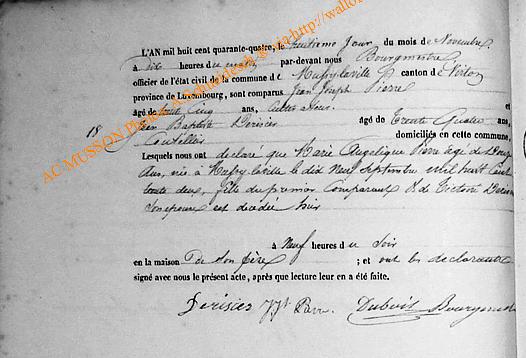 L'AN mil huit cent quarante-quatre, le huitieme jour du mois de Novembre
à dix heures du matin par-devant nous Bourgmestre
officier de l'état civil de la commune de Mussy-la-ville canton de Virton
province de Luxembourg, sont comparus Jean Joseph Pierre
âgé de trente Cinq ans, et
18 Jean Baptiste Derisier âgé de trente Quatre ans
domiciliés en cette commune,
Lesquels nous ont déclaré que Marie Angelique Pierre agée de Douze
Ans, née à Mussy-la-ville le dix Neuf Septembre mil huit Cent
trente deux, fille du premier Comparant & de Victoire
Son épouse est décédée hier
à Neuf heures du Soir
en la maison De son père ; et ont les déclarants
signé avec nous le présent acte, après que lecture leur en a été faite.
Derisier JJh Pierre Dubois Bourgmestre
AC MUSSON Photos A.Schmidt
via http://wallo